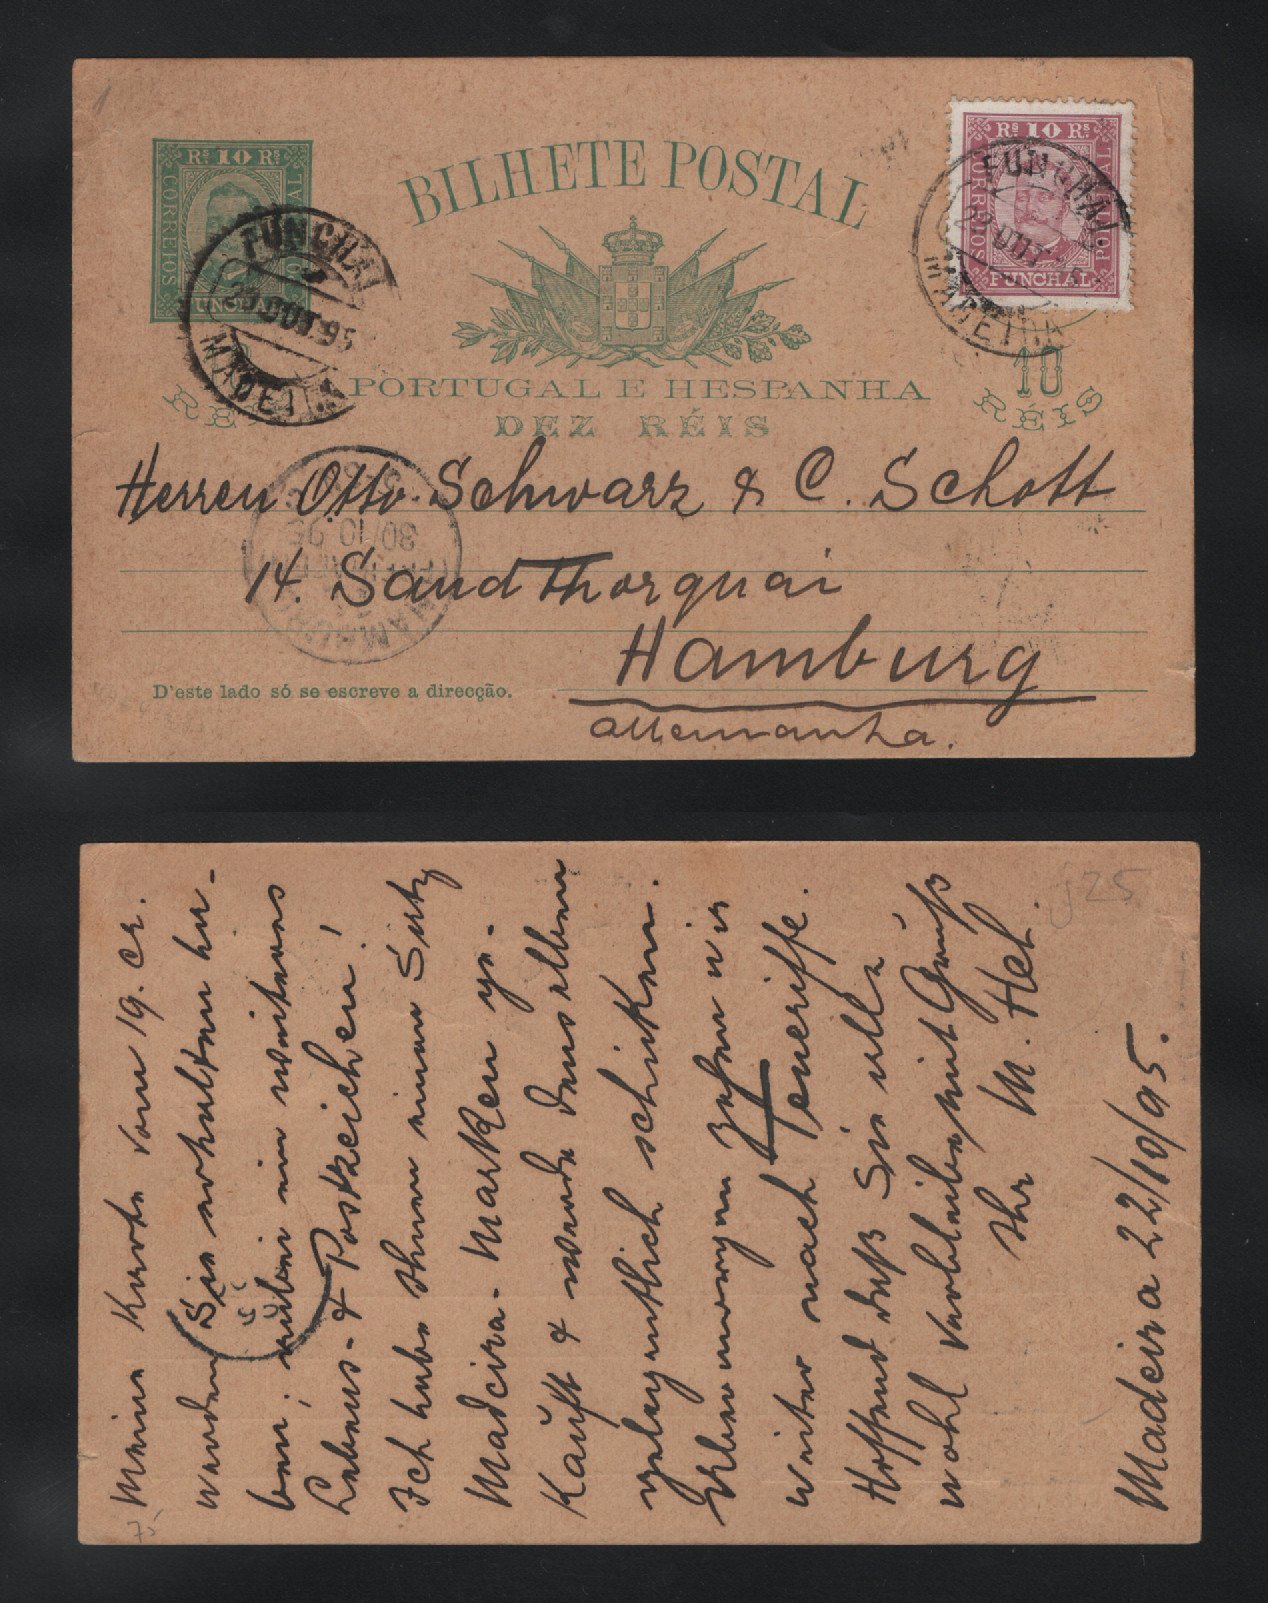 Rs 10 Rs
CORREIOS
FUNCHAL
23 OUT. 95
MADEIRA
BILHETE POSTAL
Rs 10 Rs
CORREIOS
FUNCHAL
FUNCHAL
23 OUT
MADEIRA
PORTUGAL E HESPANHA
DEZ RÉIS
RÉIS
10
RÉIS
Herren Otto Schwarz & C. Schott
14. Sandthorquai
Hamburg
Allemanha.
HAMBURG
30/10 95
D'este lado só se escreve a direcção.
Meine Karte vom 19. cr.
werden Sie erhalten ha-
ben; anbei ein weiteres
Lebens- & Postzeichen!
Ich habe Ihnen einen Satz
Madeira-Marken ge-
kauft & werde denselben
gelegentlich schicken.
Uebermorgen gehen wir
weiter nach Teneriffe.
Hoffend daß Sie alle
wohl verbleibe mit Gruß
Ihr M. Hel.
Madeira 22/10/95.
25
75